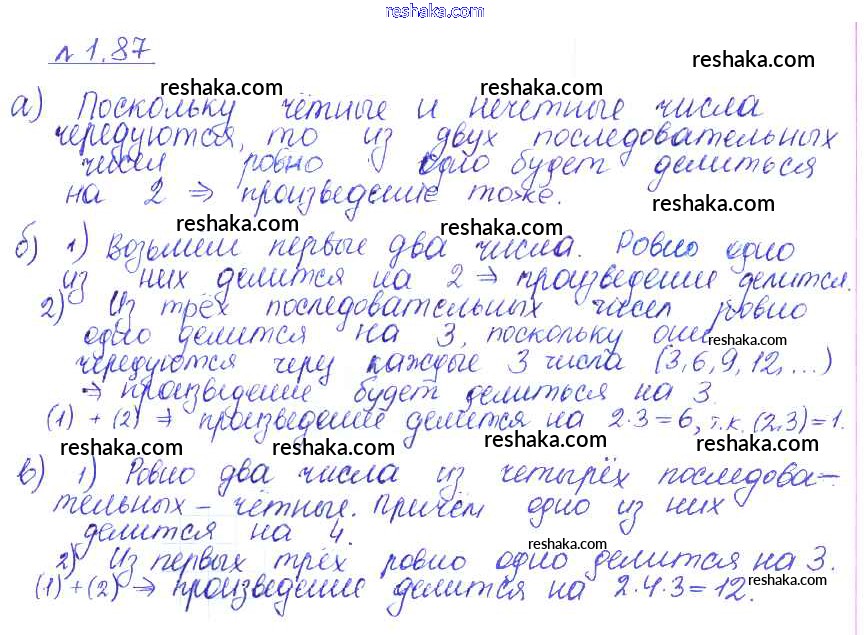 reshaka.com
№ 1.87
reshaka.com
reshaka.com
reshaka.com
а) Поскольку чётные и нечетные числа
чередуются, то из двух последовательных
чисел ровно одно будет делиться
на 2 ⇒ произведение тоже.
reshaka.com
reshaka.com
reshaka.com
б) 1) Возьмем первые два числа. Ровно одно
из них делится на 2 ⇒ произведение делится.
2) Из трёх последовательных чисел ровно
одно делится на 3, поскольку они
reshaka.com
чередуются через каждые 3 числа (3,6,9,12,...)
⇒ произведение будет делиться на 3.
(1) + (2) ⇒ произведение делится на 2·3=6, т.к. (2,3)=1.
reshaka.com
reshaka.com
reshaka.com
reshaka.com
в) 1) Ровно два числа из четырёх последова-
тельных – чётные. Причём одно из них
делится на 4.
reshaka.com
2) Из первых трёх ровно одно делится на 3.
(1)+(2) ⇒ произведение делится на 2·4·3=12.
reshaka.com